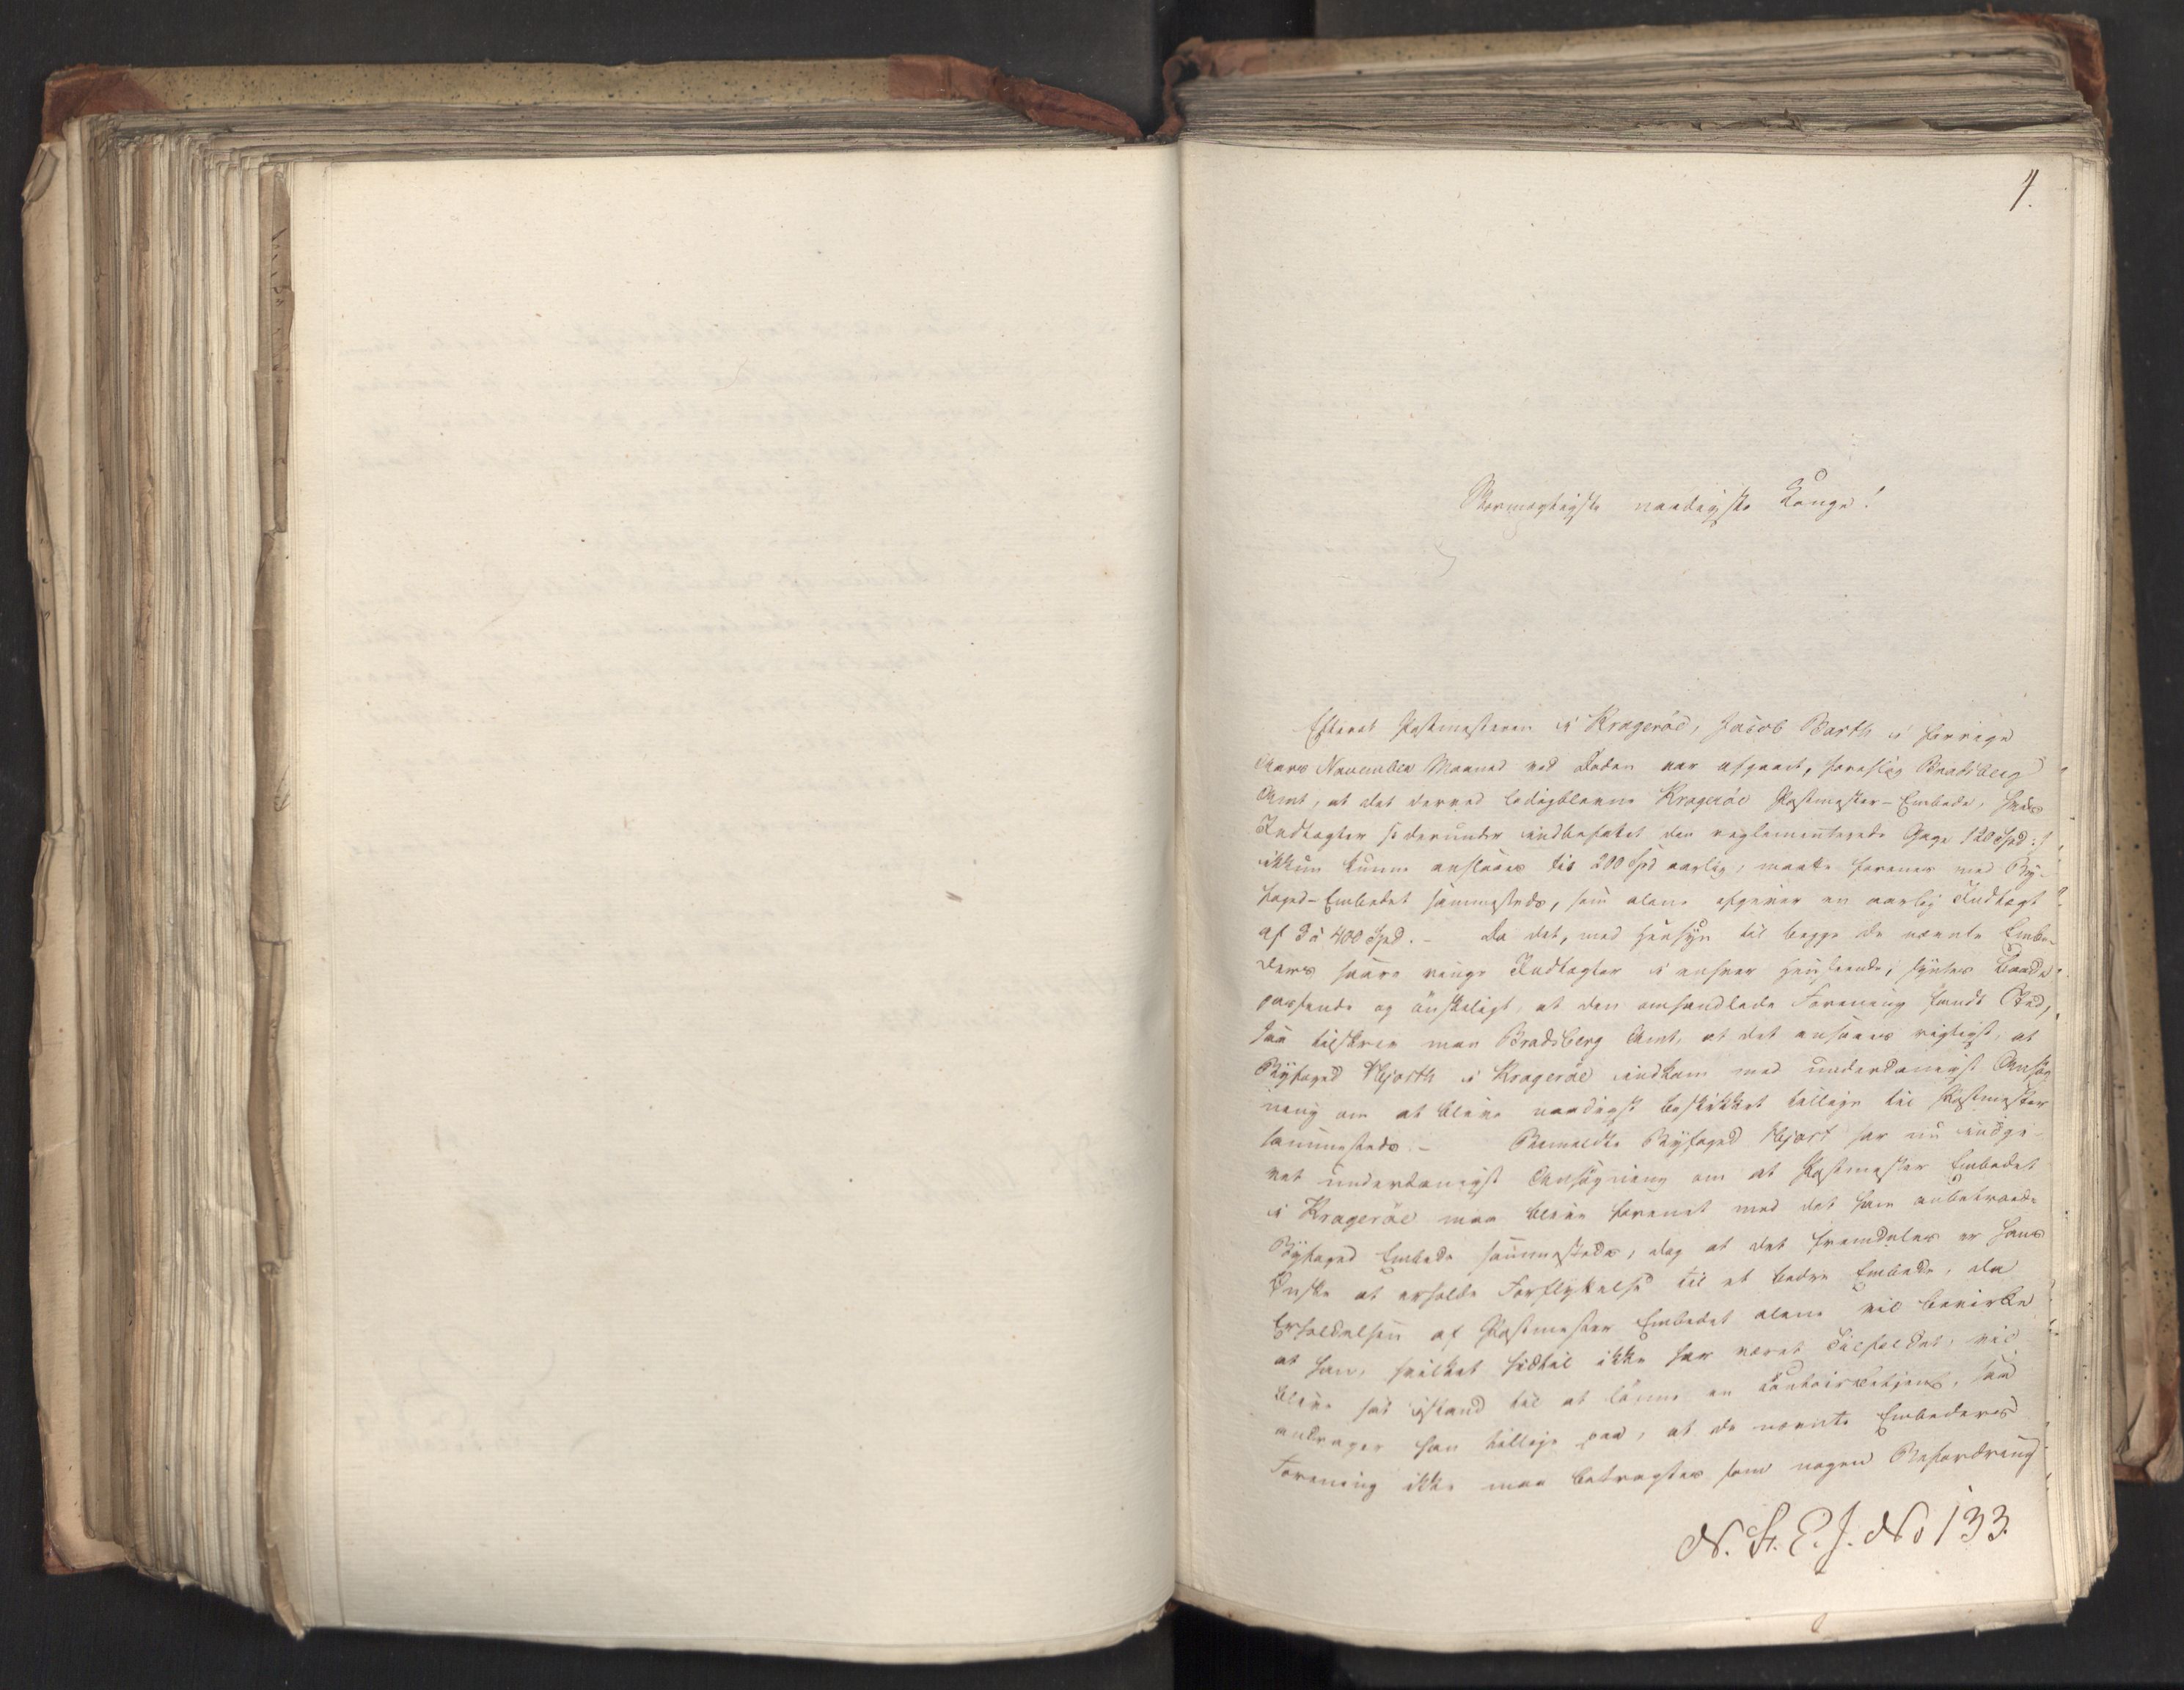 4.
Stormægtigste naadigste Konge!
Efterat Postmesteren i Kragerøe, Jacob Barth i forrige
Aars November Maaned ved Døden var afgaaet, foreslog Bradsberg
Amt, at det derved ledigblevne Kragerøe Postmester-Embede, hvis
Indtægter /: derunder indbefattet den reglementerede Gage 120 Spd :/
ikkun kunne anslaaes til 200 Spd aarlig, maatte forenes med By-
foged-Embedet sammesteds, som alene afgiver en aarlig Indtægt
af 3 à 400 Spd. - Da det, med Hensyn til begge de nævnte Embe-
ders saare ringe Indtægter i enhver Henseende, syntes baade
passende og ønskeligt, at den omhandlede Forening fandt Sted,
saa tilskrev man Bradsberg Amt, at det ansaaes rigtigst, at
Byfoged Hjorth i Kragerøe indkom med underdanigst Ansøg
ning om at blive naadigst beskikket tillige til Postmester
sammesteds. - Bemeldte Byfoged Hjort har nu indgi-
vet underdanigst Ansøgning om at Postmester Embedet
i Kragerøe maa blive forenet med det ham anbetroede
Byfoged Embede sammesteds, dog at det fremdeles er hans
Ønske at erholde Forflyttelse til et bedre Embede, da
Erholdelsen af Postmester Embedet alene vil bevirke
at han, hvilket hidtil ikke har været Tilfældet, vil
blive sat istand til at lønne en Contoirbetjent, saa
andrager han tillige paa, at de nævnte Embeders
Forening ikke maa betragtes som nogen Befordring
N. S. E. J. No 133.